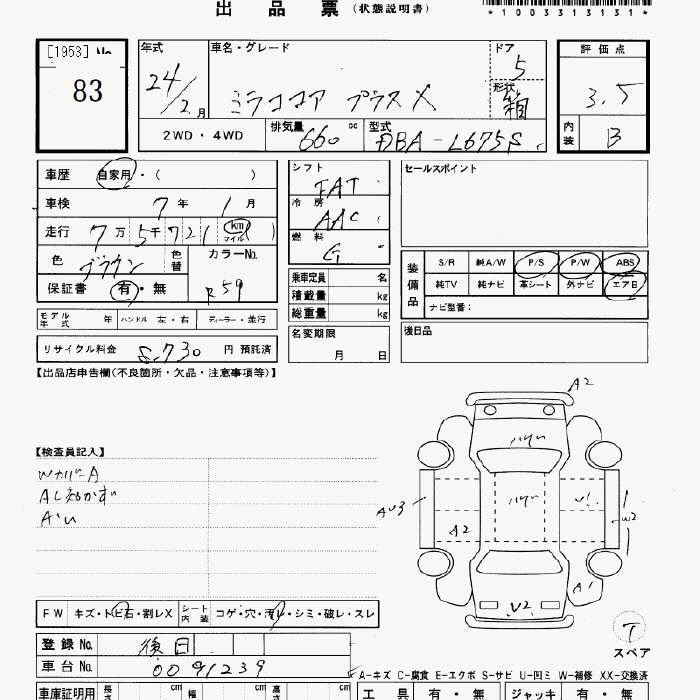 出 品 票 (状態説明書)
*1003313131*
[1953] No.
83
年式
24/2月
車名・グレード
ミラココア プラスX
ドア
5
形状
箱
評価点
3.5
2WD・4WD
排気量
660 cc
型式
DBA-L675S
内装
B
車歴 自家用・( )
車検 7年 1月
走行 7万5千721 (km マイル)
色 ブラウン 色替
カラーNo.
R59
保証書 有・無
シフト
FAT
冷房
AAC
燃料
G
乗車定員 名
積載量 kg
総重量 kg
セールスポイント
装備品
S/R 純A/W P/S P/W ABS
純TV 純ナビ 革シート 外ナビ エアB
ナビ型番:
モデル年式 年 ハンドル 左・右 ディーラー・並行
名変期限
月 日
後日品
リサイクル料金 8,730 円 預託済
【出品店申告欄(不良箇所・欠品・注意事項等)】
【検査員記入】
A2
U1
AU3
A2
W2
A1
V2
T
スペア
FW キズ・トビ石・割レX シート内装 コゲ・穴・汚レ・シミ・破レ・スレ
登録No. 後日
車台No. 0091239
A-キズ C-腐食 E-エクボ S-サビ U-凹ミ W-補修 XX-交換済
車庫証明用 長さ cm 幅 cm 高さ cm
工具 有・無 ジャッキ 有・無